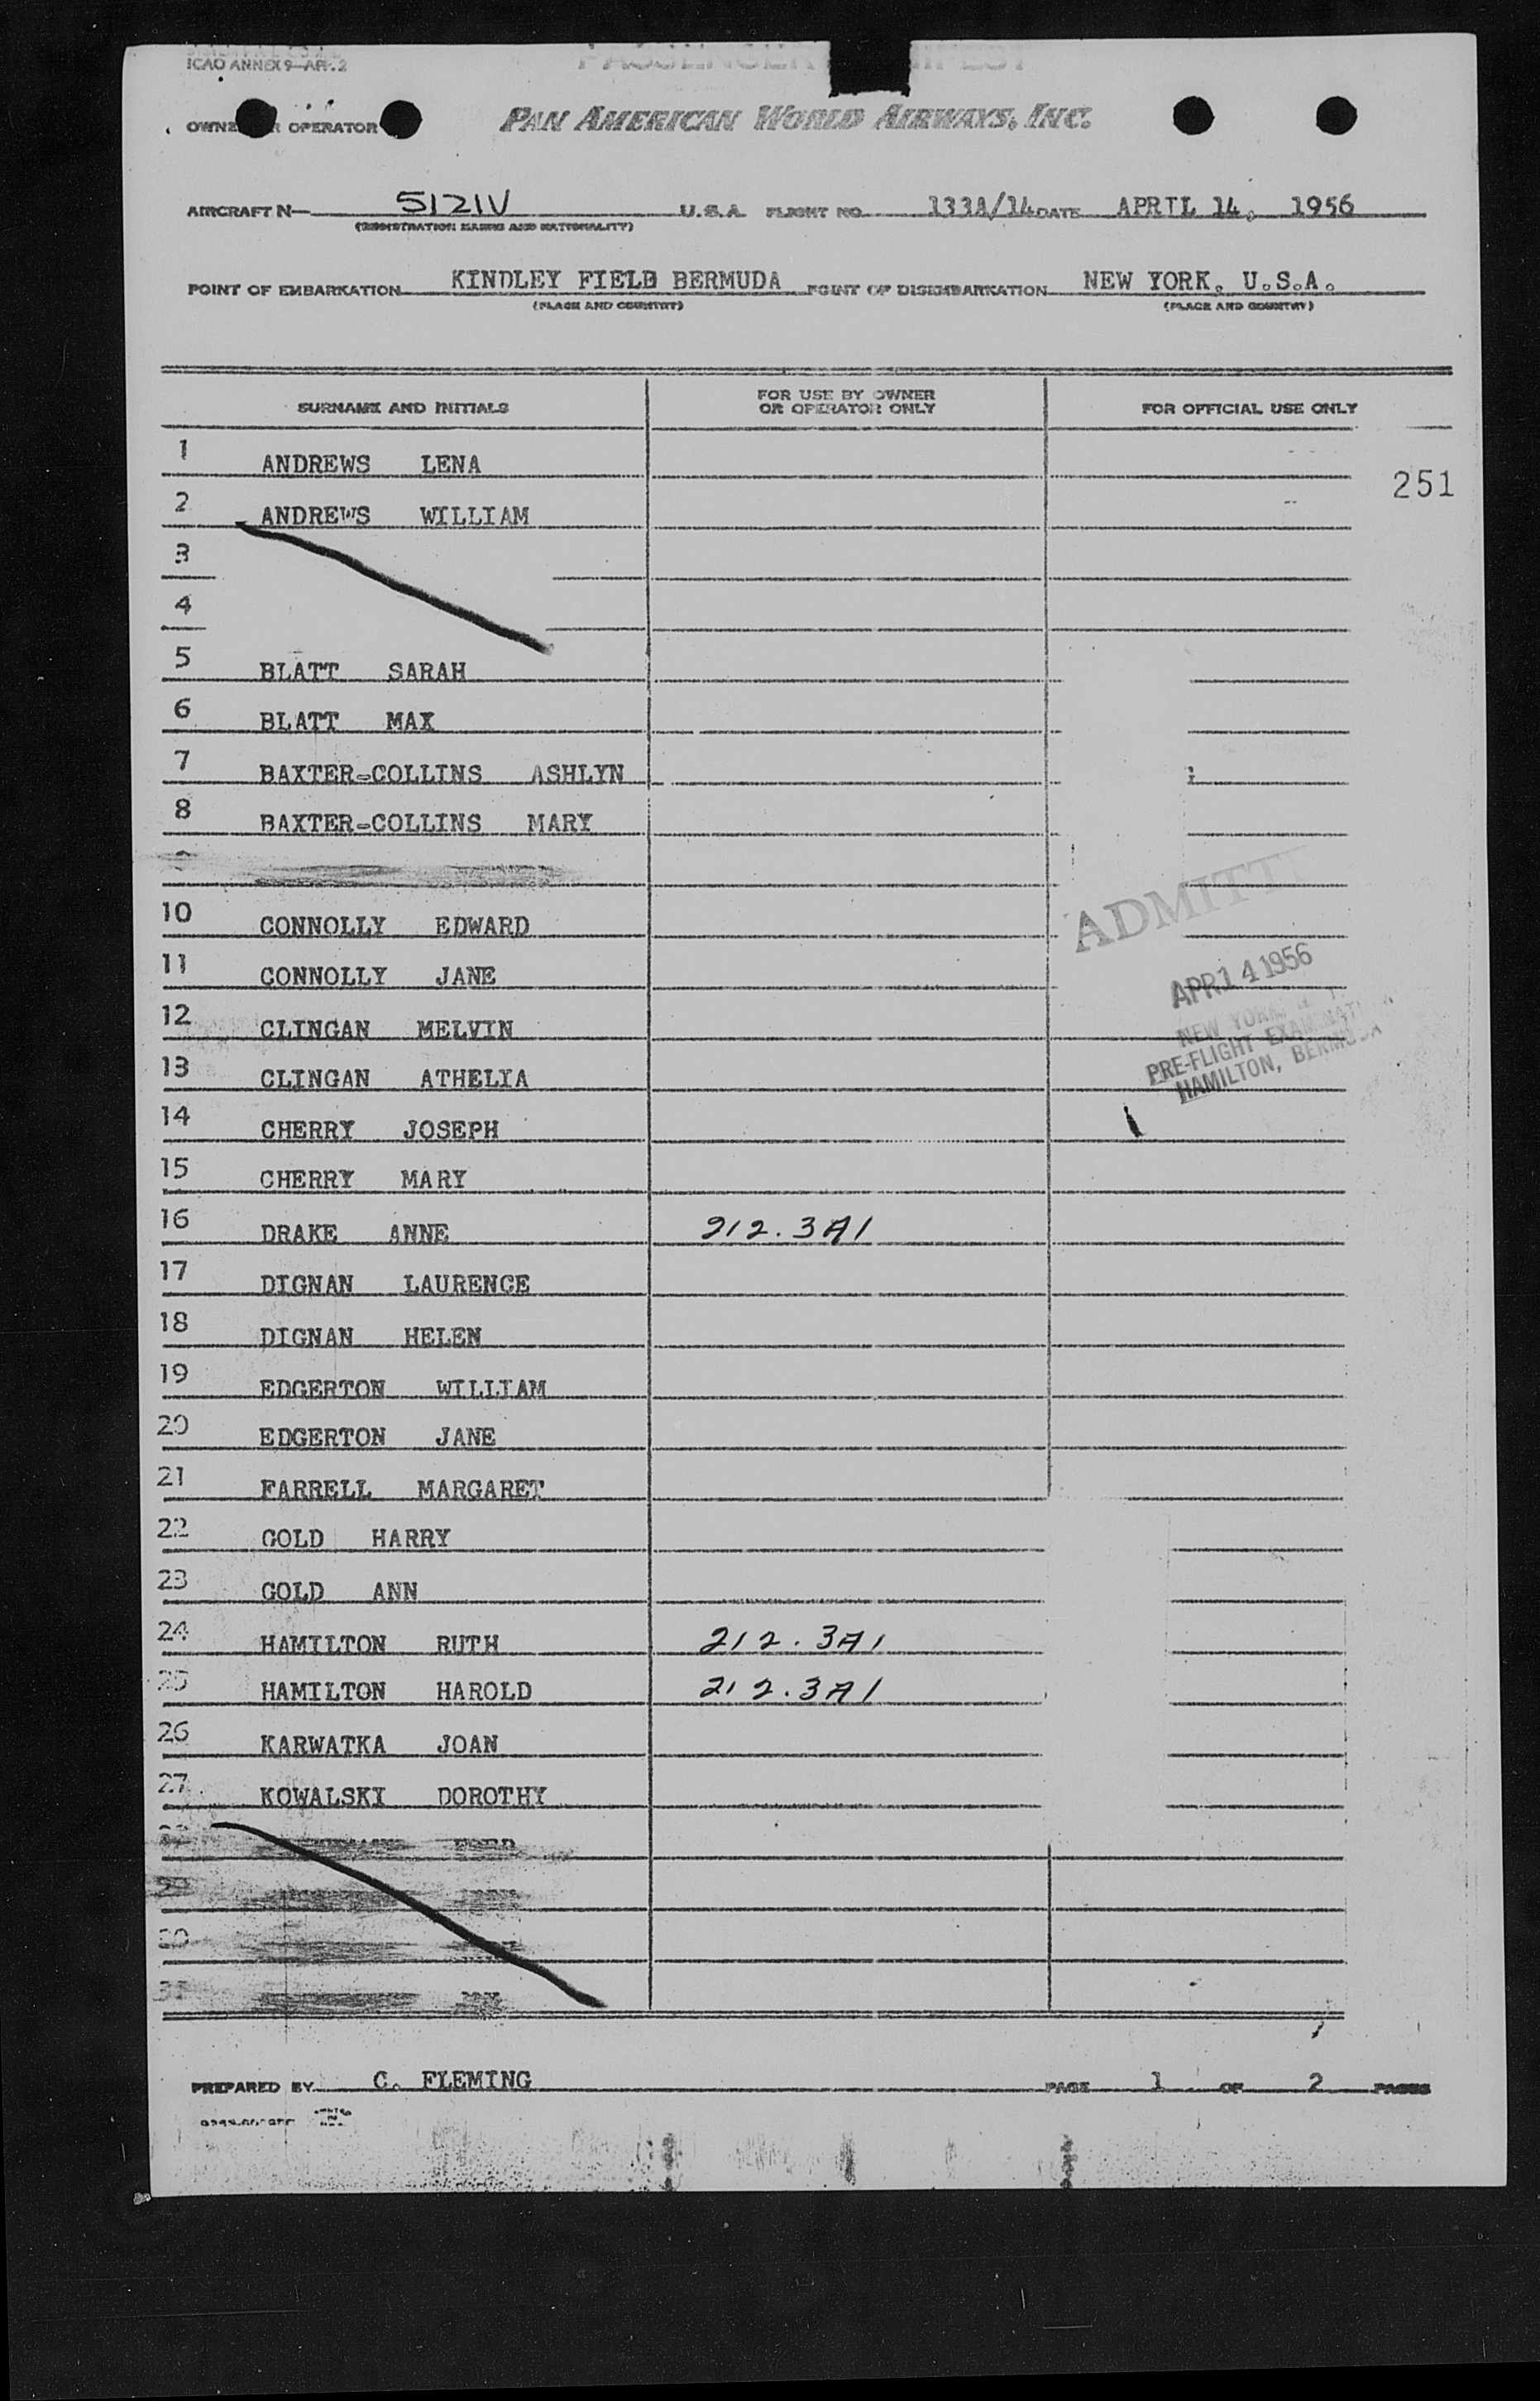 ICAO ANNEX 9—AP.2
PASSENGER MANIFEST
OWNER OR OPERATOR PAN AMERICAN WORLD AIRWAYS, INC.
AIRCRAFT N— 5121V U.S.A. FLIGHT NO. 133A/14 DATE APRIL 14, 1956
(REGISTRATION MARKS AND NATIONALITY)
POINT OF EMBARKATION KINDLEY FIELD BERMUDA POINT OF DISEMBARKATION NEW YORK, U.S.A.
(PLACE AND COUNTRY) (PLACE AND COUNTRY)
SURNAME AND INITIALS FOR USE BY OWNER OR OPERATOR ONLY FOR OFFICIAL USE ONLY
1 ANDREWS LENA
251
2 ANDREWS WILLIAM
3
4
5 BLATT SARAH
6 BLATT MAX
7 BAXTER-COLLINS ASHLYN
8 BAXTER-COLLINS MARY
10 CONNOLLY EDWARD
ADMITTE
11 CONNOLLY JANE
APR 14 1956
12 CLINGAN MELVIN
NEW YORK, N.Y.
13 CLINGAN ATHELIA
PRE-FLIGHT EXAMINATION
HAMILTON, BERMUDA
14 CHERRY JOSEPH
15 CHERRY MARY
16 DRAKE ANNE 212.3A1
17 DIGNAN LAURENCE
18 DIGNAN HELEN
19 EDGERTON WILLIAM
20 EDGERTON JANE
21 FARRELL MARGARET
22 GOLD HARRY
23 GOLD ANN
24 HAMILTON RUTH 212.3A1
25 HAMILTON HAROLD 212.3A1
26 KARWATKA JOAN
27 KOWALSKI DOROTHY
30
31
PREPARED BY C. FLEMING PAGE 1 OF 2 PAGES